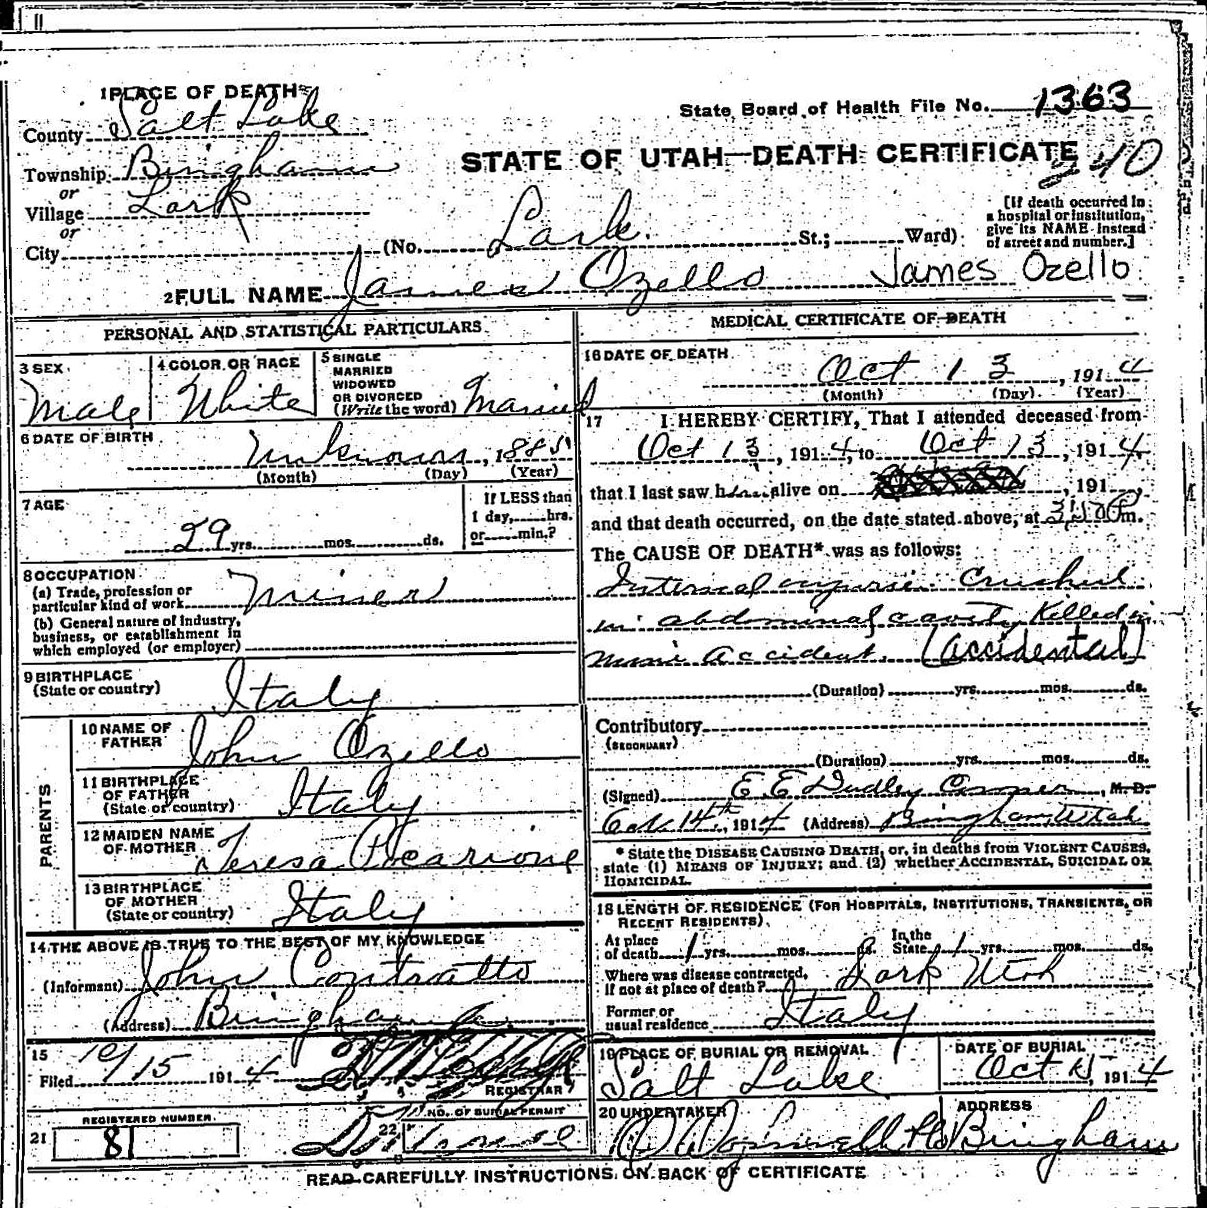 1 PLACE OF DEATH
State Board of Health File No. 1363
County Salt Lake
STATE OF UTAH—DEATH CERTIFICATE
240
Township Bingham
or
Village Lark
or
City (No. Lark. St.; Ward)
[If death occurred in a hospital or institution, give its NAME instead of street and number.]
2 FULL NAME James Ozello James Ozello
PERSONAL AND STATISTICAL PARTICULARS
3 SEX Male
4 COLOR OR RACE White
5 SINGLE MARRIED WIDOWED OR DIVORCED (Write the word) Married
6 DATE OF BIRTH
Unknown, 1885
(Month) (Day) (Year)
7 AGE
29 yrs. mos. ds.
If LESS than 1 day, hrs. or min.?
8 OCCUPATION
(a) Trade, profession or particular kind of work Miner
(b) General nature of Industry, business, or establishment in which employed (or employer)
9 BIRTHPLACE
(State or country) Italy
PARENTS
10 NAME OF FATHER John Ozello
11 BIRTHPLACE OF FATHER (State or country) Italy
12 MAIDEN NAME OF MOTHER Teresa
13 BIRTHPLACE OF MOTHER (State or country) Italy
14 THE ABOVE IS TRUE TO THE BEST OF MY KNOWLEDGE
(Informant) John Contratto
(Address) Bingham
15
Filed 10/15 1914
REGISTRAR
REGISTERED NUMBER
21 81
22 NO. OF BURIAL PERMIT
MEDICAL CERTIFICATE OF DEATH
16 DATE OF DEATH
Oct 13, 1914
(Month) (Day) (Year)
17 I HEREBY CERTIFY, That I attended deceased from
Oct 13, 1914, to Oct 13, 1914.
that I last saw him alive on , 191 ,
and that death occurred, on the date stated above, at m.
The CAUSE OF DEATH* was as follows:
Internal Crushed
in abdominal cavity Killed in
mine Accident. (accidental)
(Duration) yrs. mos. ds.
Contributory
(SECONDARY)
(Duration) yrs. mos. ds.
(Signed) E. E. Dudley Coroner, M.D.
Oct 14th, 1914 (Address) Bingham Utah
* State the DISEASE CAUSING DEATH, or, in deaths from VIOLENT CAUSES,
state (1) MEANS OF INJURY; and (2) whether ACCIDENTAL, SUICIDAL OR
HOMICIDAL.
18 LENGTH OF RESIDENCE (FOR HOSPITALS, INSTITUTIONS, TRANSIENTS, OR
RECENT RESIDENTS).
At place of death 1 yrs. mos. ds. In the State 1 yrs. mos. ds.
Where was disease contracted, if not at place of death? Lark Utah
Former or usual residence Italy
19 PLACE OF BURIAL OR REMOVAL
Salt Lake
DATE OF BURIAL
Oct 15, 1914
20 UNDERTAKER
ADDRESS
Bingham
READ CAREFULLY INSTRUCTIONS ON BACK OF CERTIFICATE